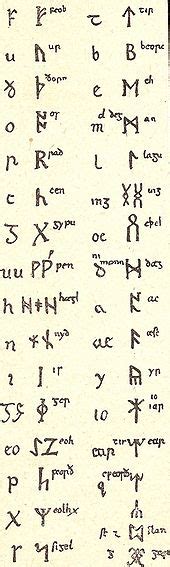 f ᚠ feoh t ᛏ tir
u ᚢ ur b ᛒ beorc
ð ᚦ ðorn e ᛖ eh
o ᚩ m d deg ᛗ an
r ᚱ rað l ᛚ lagu
c ᚳ cen ing ᛝ ing
ᚷ gyfu oe ᛟ eþel
uu ᚹ ƿen ð mann ᛞ dæg
h ᚻ hægl a ᚪ ac
n ᚾ nyd ae ᚫ
i ᛁ is y ᚣ yr
ger io ᛡ io iar
eo ᛇ eoh ear tir ear
p ᛈ peorð q cƿeorð
x ᛉ eolhx st z stan
s ᛋ sigel g